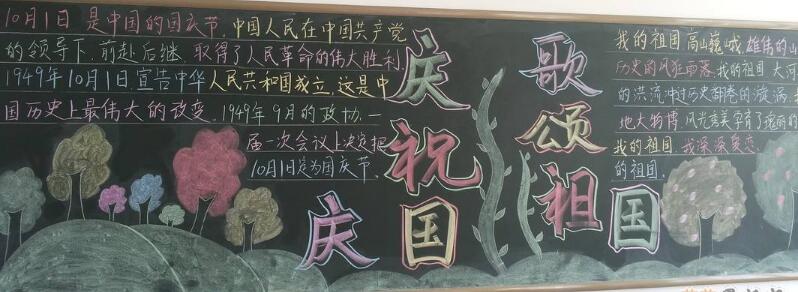 10月1日 是中国的国庆节,中国人民在中国共产党
的领导下,前赴后继,取得了人民革命的伟大胜利.
1949年10月1日,宣告中华人民共和国成立,这是中
国历史上最伟大的改变,1949年9月的政协,一
届一次会议上决定把
10月1日定为国庆节.
庆祝
国庆
歌颂祖国
我的祖国,高山巍峨,雄伟的山
历史的风狂雨落,我的祖国 大河
的洪流冲过历史翻卷的漩涡
地大物博,风光秀美孕育了瑰丽的
我的祖国,我深深爱恋
的祖国.